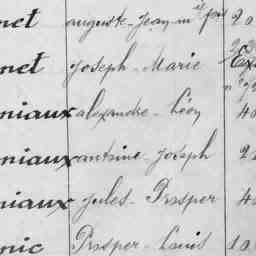 net auguste-Jean-m el 20
net Joseph-Marie
niaux alexandre-Léon 4
niaux antoine-Joseph 2
niaux Jules-Prosper 4
nic Prosper-Louis 10